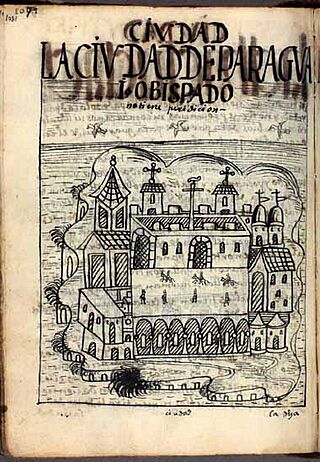 CIVDAD
LA CIVDAD DE PARAGVA
I OBISPADO
no tiene juridicion
ciudad